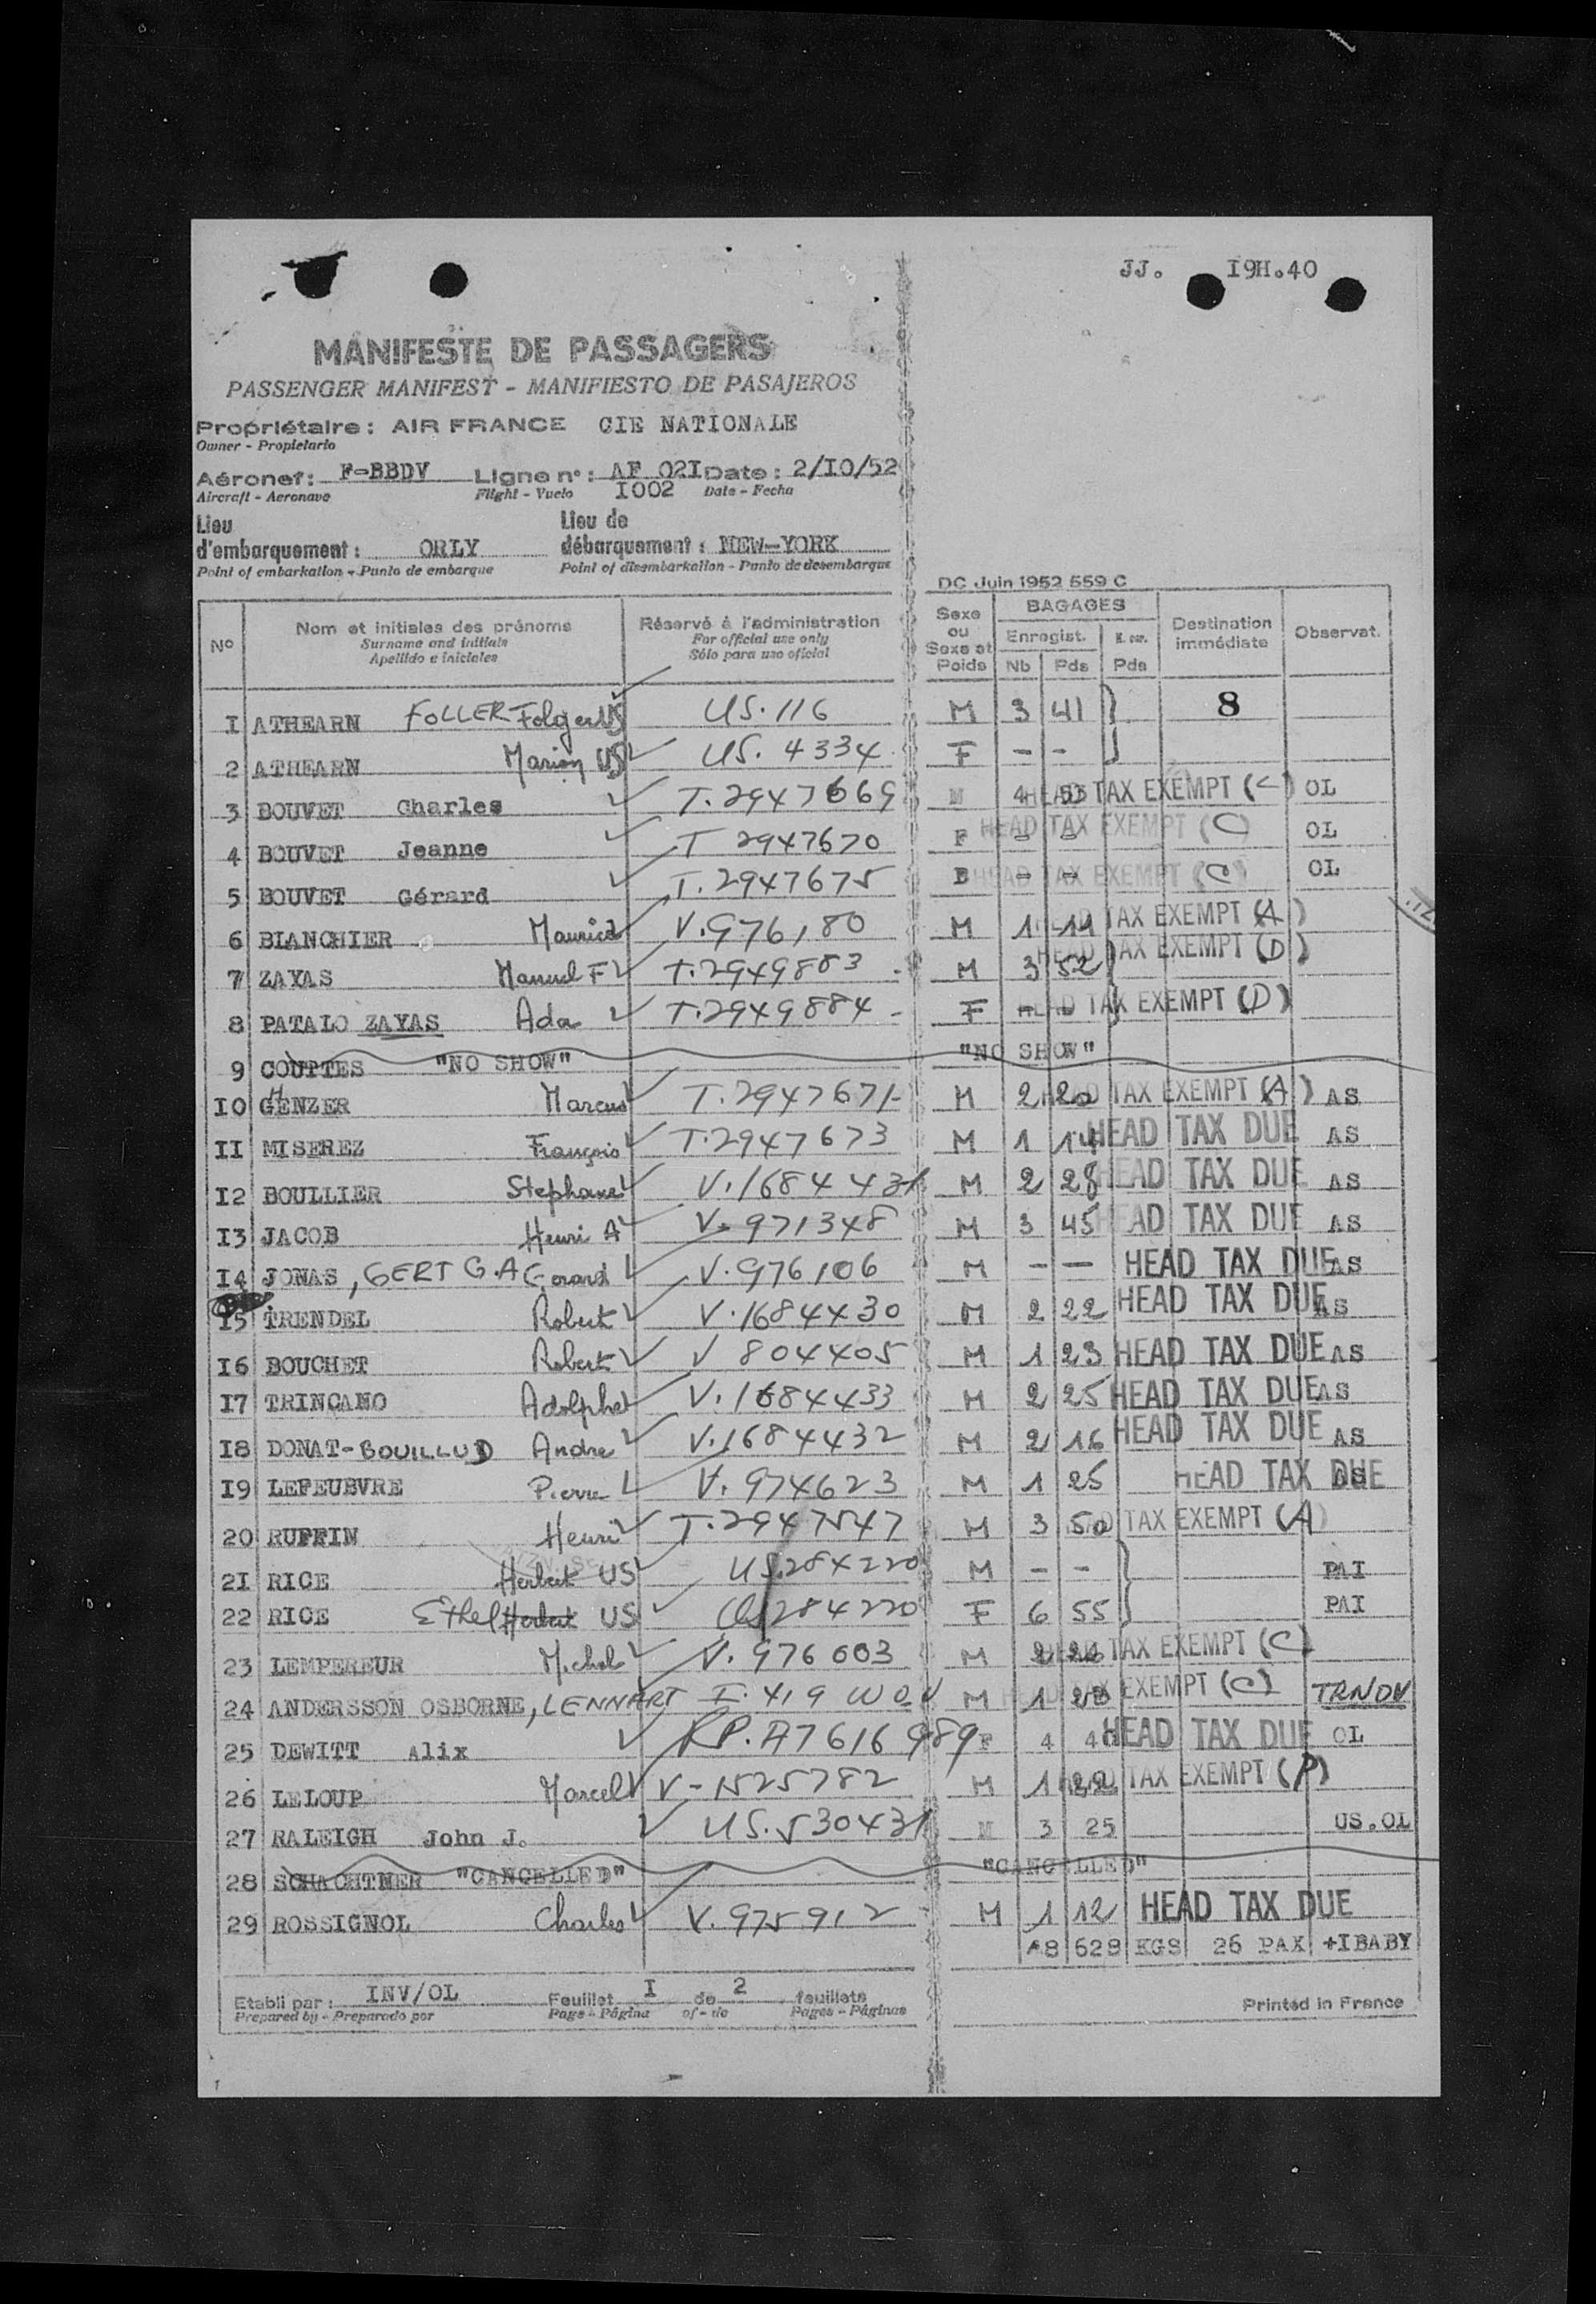 JJ. I9H.40
MANIFESTE DE PASSAGERS
PASSENGER MANIFEST - MANIFIESTO DE PASAJEROS
Propriétaire : AIR FRANCE CIE NATIONALE
Owner - Propietario
Aéronef : F-BBDV Ligne n° : AF 02I Date : 2/I0/52
Aircraft - Aeronave Flight - Vuelo I002 Date - Fecha
Lieu d'embarquement : ORLY Lieu de débarquement : NEW-YORK
Point of embarkation - Punto de embarque Point of disembarkation - Punto de desembarque
DC Juin 1952 559 C
N° Nom et initiales des prénoms Réservé à l'administration Sexe ou Sexe et Poids BAGAGES Destination immédiate Observat.
Surname and initials For official use only Enregist.
Apellido e iniciales Sólo para uso oficial Nb Pds Pds
I ATHEARN FOLLER Folger US US.116 M 3 41 8
2 ATHEARN Marion US US. 4334 F - -
3 BOUVET Charles T.2947669 M 4 HEAD TAX EXEMPT (C) OL
4 BOUVET Jeanne T 2947670 F - - HEAD TAX EXEMPT (C) OL
5 BOUVET Gérard T.2947675 B - - HEAD TAX EXEMPT (C) OL
6 BIANCHIER Maurice V.976180 M 1 14 HEAD TAX EXEMPT (A)
7 ZAYAS Manuel F T.2949883 - M 3 52 HEAD TAX EXEMPT (D)
8 PATALO ZAYAS Ada T.2949884 - F - HEAD TAX EXEMPT (D)
9 COUTTES "NO SHOW" "NO SHOW"
I0 GENZER H Marcus T.2947671- M 2 20 HEAD TAX EXEMPT (A) AS
II MISEREZ François T.2947673 M 1 14 HEAD TAX DUE AS
I2 BOULLIER Stephane V.1684431 M 2 28 HEAD TAX DUE AS
I3 JACOB Henri A V-971348 M 3 45 HEAD TAX DUE AS
I4 JONAS, GERT G.A Gerard V.976106 M - - HEAD TAX DUE AS
I5 TRENDEL Robert V.1684430 M 2 22 HEAD TAX DUE AS
I6 BOUCHET Robert V 804405 M 1 23 HEAD TAX DUE AS
I7 TRINCANO Adolphe V.1684433 M 2 25 HEAD TAX DUE AS
I8 DONAT-BOUILLUD Andre V.1684432 M 2 16 HEAD TAX DUE AS
I9 LEFEUBVRE Pierre V.974623 M 1 25 HEAD TAX DUE AS
20 RUFFIN Henri T.2947547 M 3 50 HEAD TAX EXEMPT (A)
2I RICE Herbert US US.284220 M - - PAI
22 RICE Ethel Herbert US US 284220 F 6 55 PAI
23 LEMPEREUR Michel V.976003 M 2 HEAD TAX EXEMPT (C)
24 ANDERSSON OSBORNE, LENNART M 1 HEAD TAX EXEMPT (C) TRNDV
25 DEWITT Alix RP.A7616989 F 4 HEAD TAX DUE OL
26 LELOUP Marcel V-1525782 M 1 22 HEAD TAX EXEMPT
27 RALEIGH John J. US.530431 M 3 25 US.OL
28 SCHACHTNER "CANCELLED" "CANCELLED"
29 ROSSIGNOL Charles V.975912 M 1 12 HEAD TAX DUE
628 KGS 26 PAX +IBABY
Etabli par : INV/OL Feuillet I de 2 feuillets
Prepared by - Preparado por Page - Página of - de Pages - Páginas
Printed in France